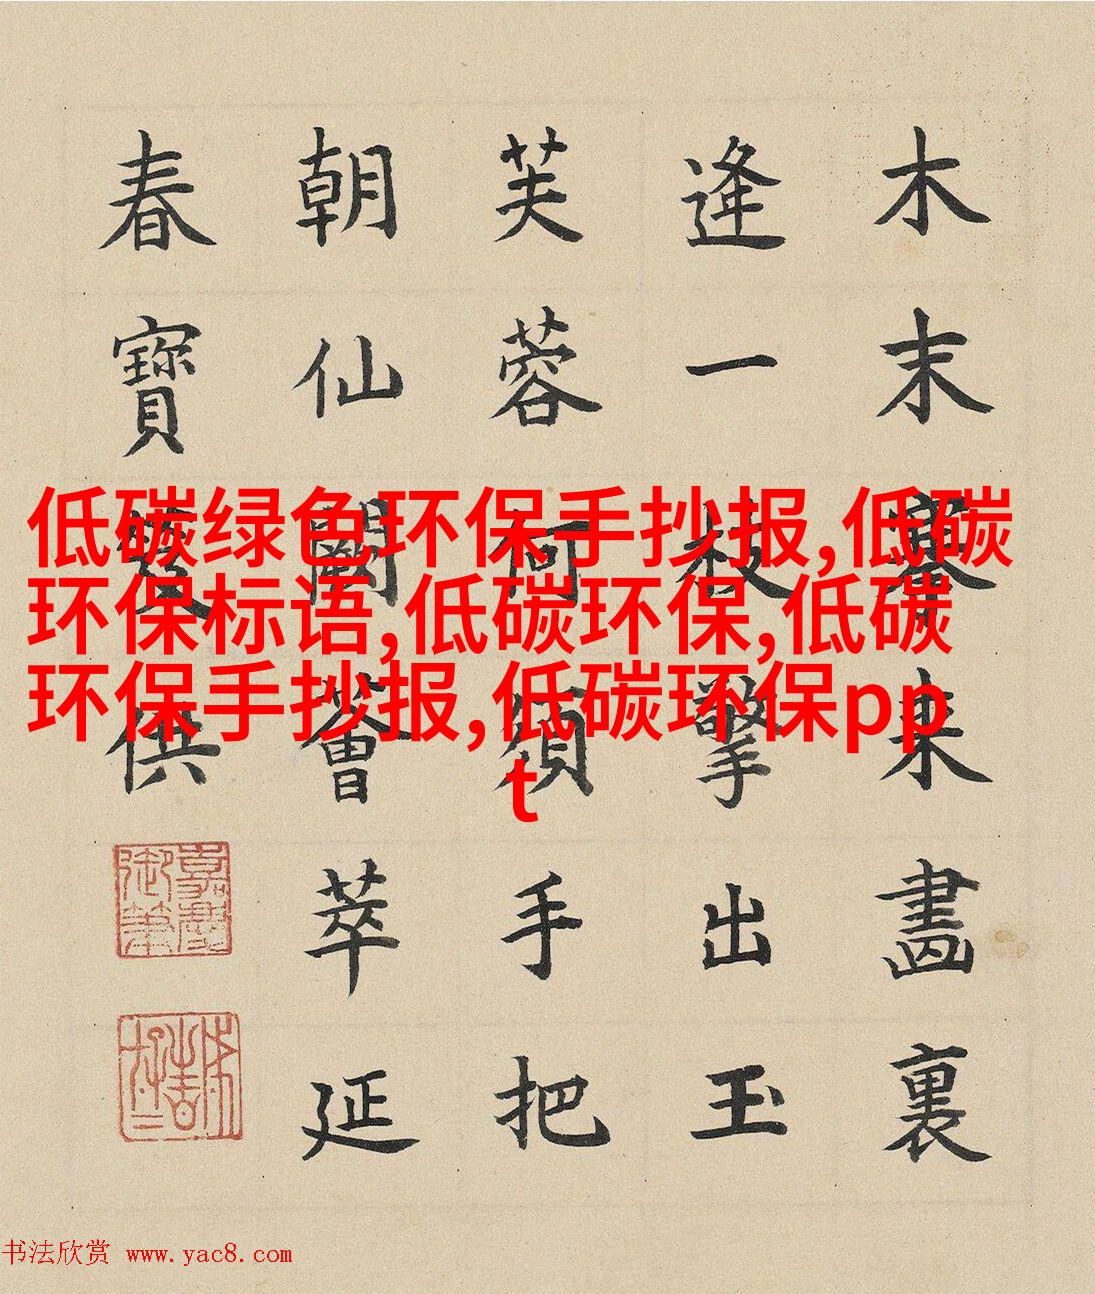 木末搴来畫裏
逢一枝擎出玉
芙蓉何須手把
朝仙薈萃延
春寶供
嘉慶御筆
低碳绿色环保手抄报,低碳
环保标语,低碳环保,低碳
环保手抄报,低碳环保pp
t
书法欣赏 www.yac8.com